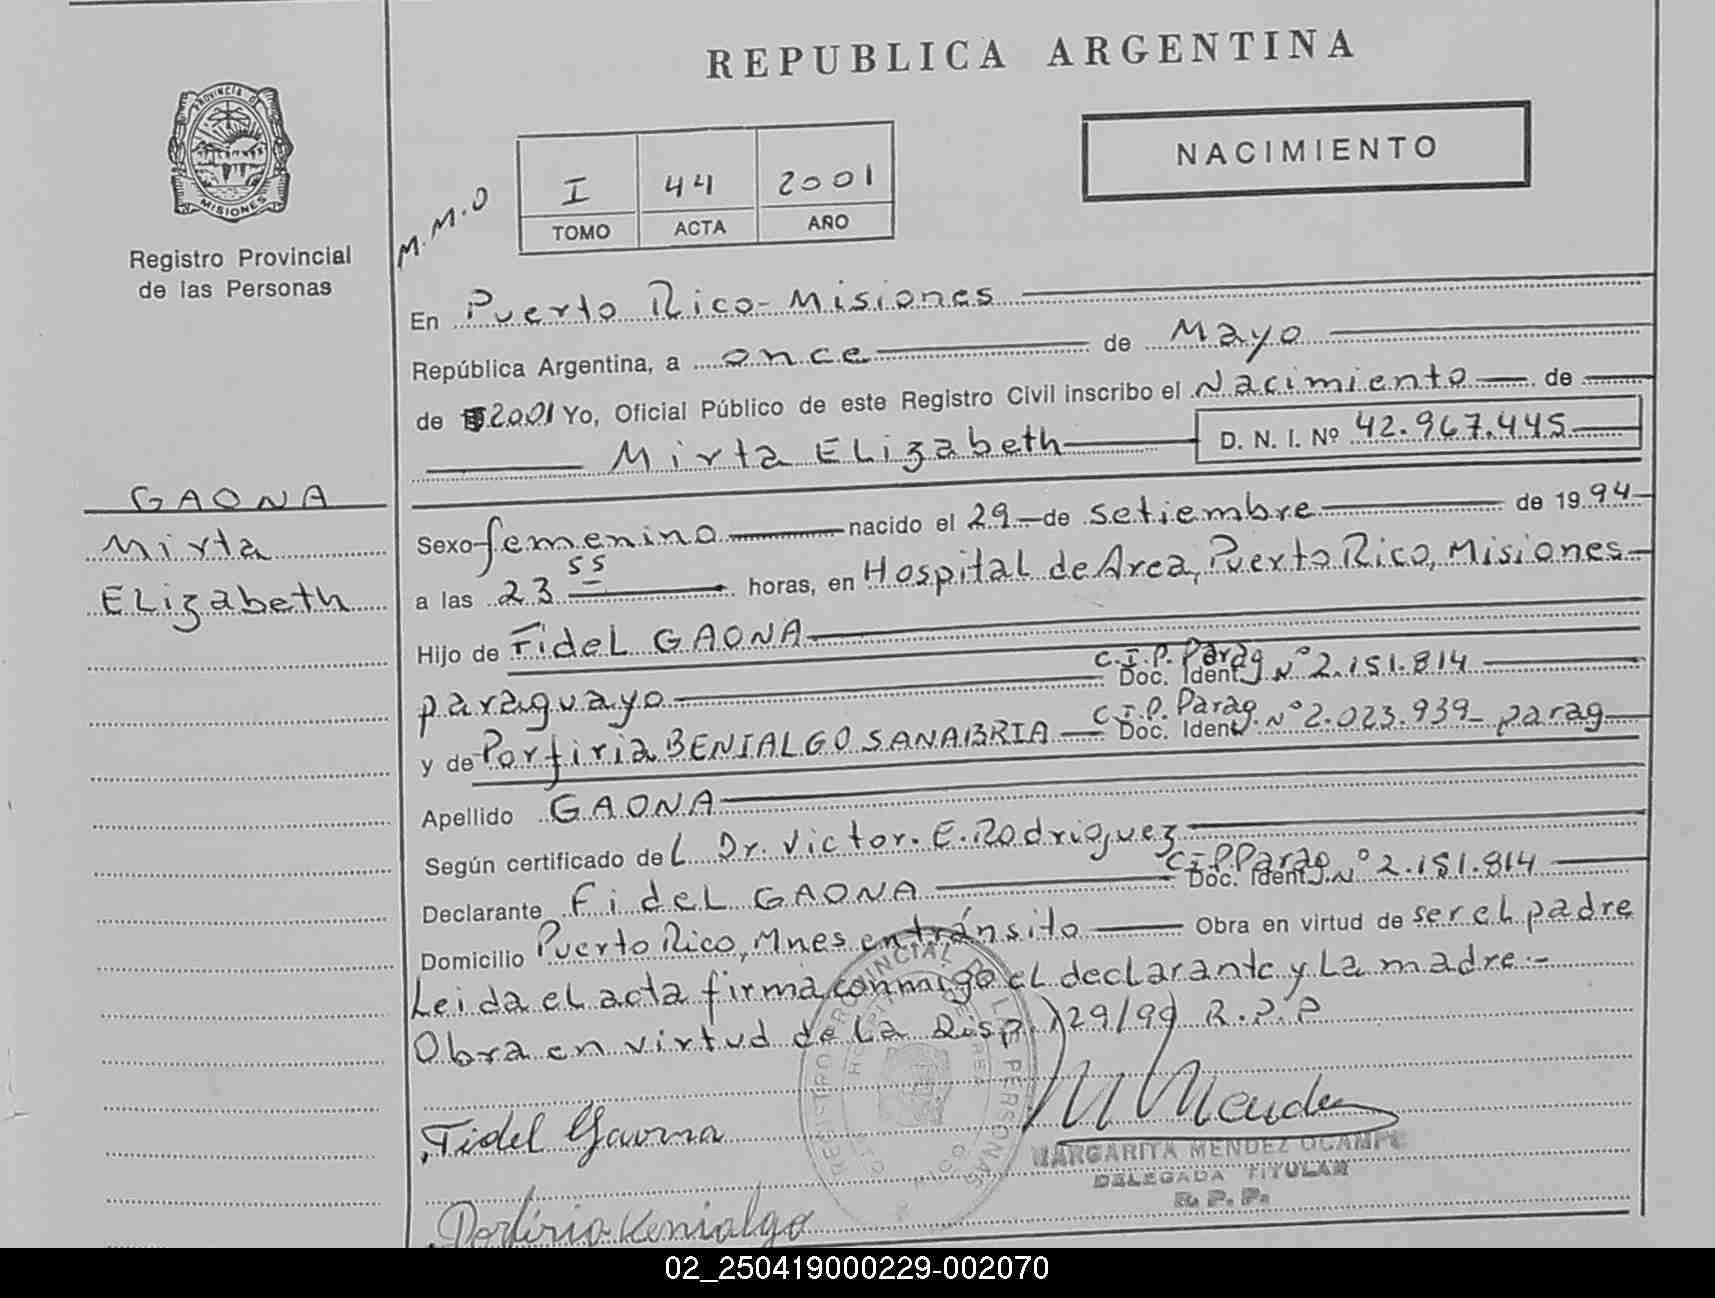 REPUBLICA ARGENTINA
PROVINCIA DE
MISIONES
Registro Provincial
de las Personas
M.M.O
I 44 2001
TOMO ACTA AÑO
NACIMIENTO
En Puerto Rico-Misiones
República Argentina, a once de Mayo
de 2001 Yo, Oficial Público de este Registro Civil inscribo el Nacimiento de
Mirta ELizabeth D. N. I. Nº 42.967.445
GAONA
Mirta
ELizabeth
Sexo femenino nacido el 29 de setiembre de 1994
a las 23 55 horas, en Hospital de Area, Puerto Rico, Misiones
Hijo de Fidel GAONA
paraguayo C.I.P. Parag Doc. Ident. Nº 2.151.814
y de Porfiria BENIALGO SANABRIA C.I.P. Parag. Doc. Ident. Nº 2.023.939 parag
Apellido GAONA
Según certificado del Dr. Victor. E. Rodriguez
Declarante Fidel GAONA C.I.P Parag Doc. Ident. Nº 2.151.814
Domicilio Puerto Rico, Mnes en tránsito Obra en virtud de ser el padre
Leida el acta firma conmigo el declarante y La madre.-
Obra en virtud de La Disp. 129/99 R.P.P
Fidel Gaona
MARGARITA MENDEZ OCAMPO
DELEGADA TITULAR
R. P. P.
Porfiria Benialgo
REGISTRO PROVINCIAL DE LAS PERSONAS
02_250419000229-002070